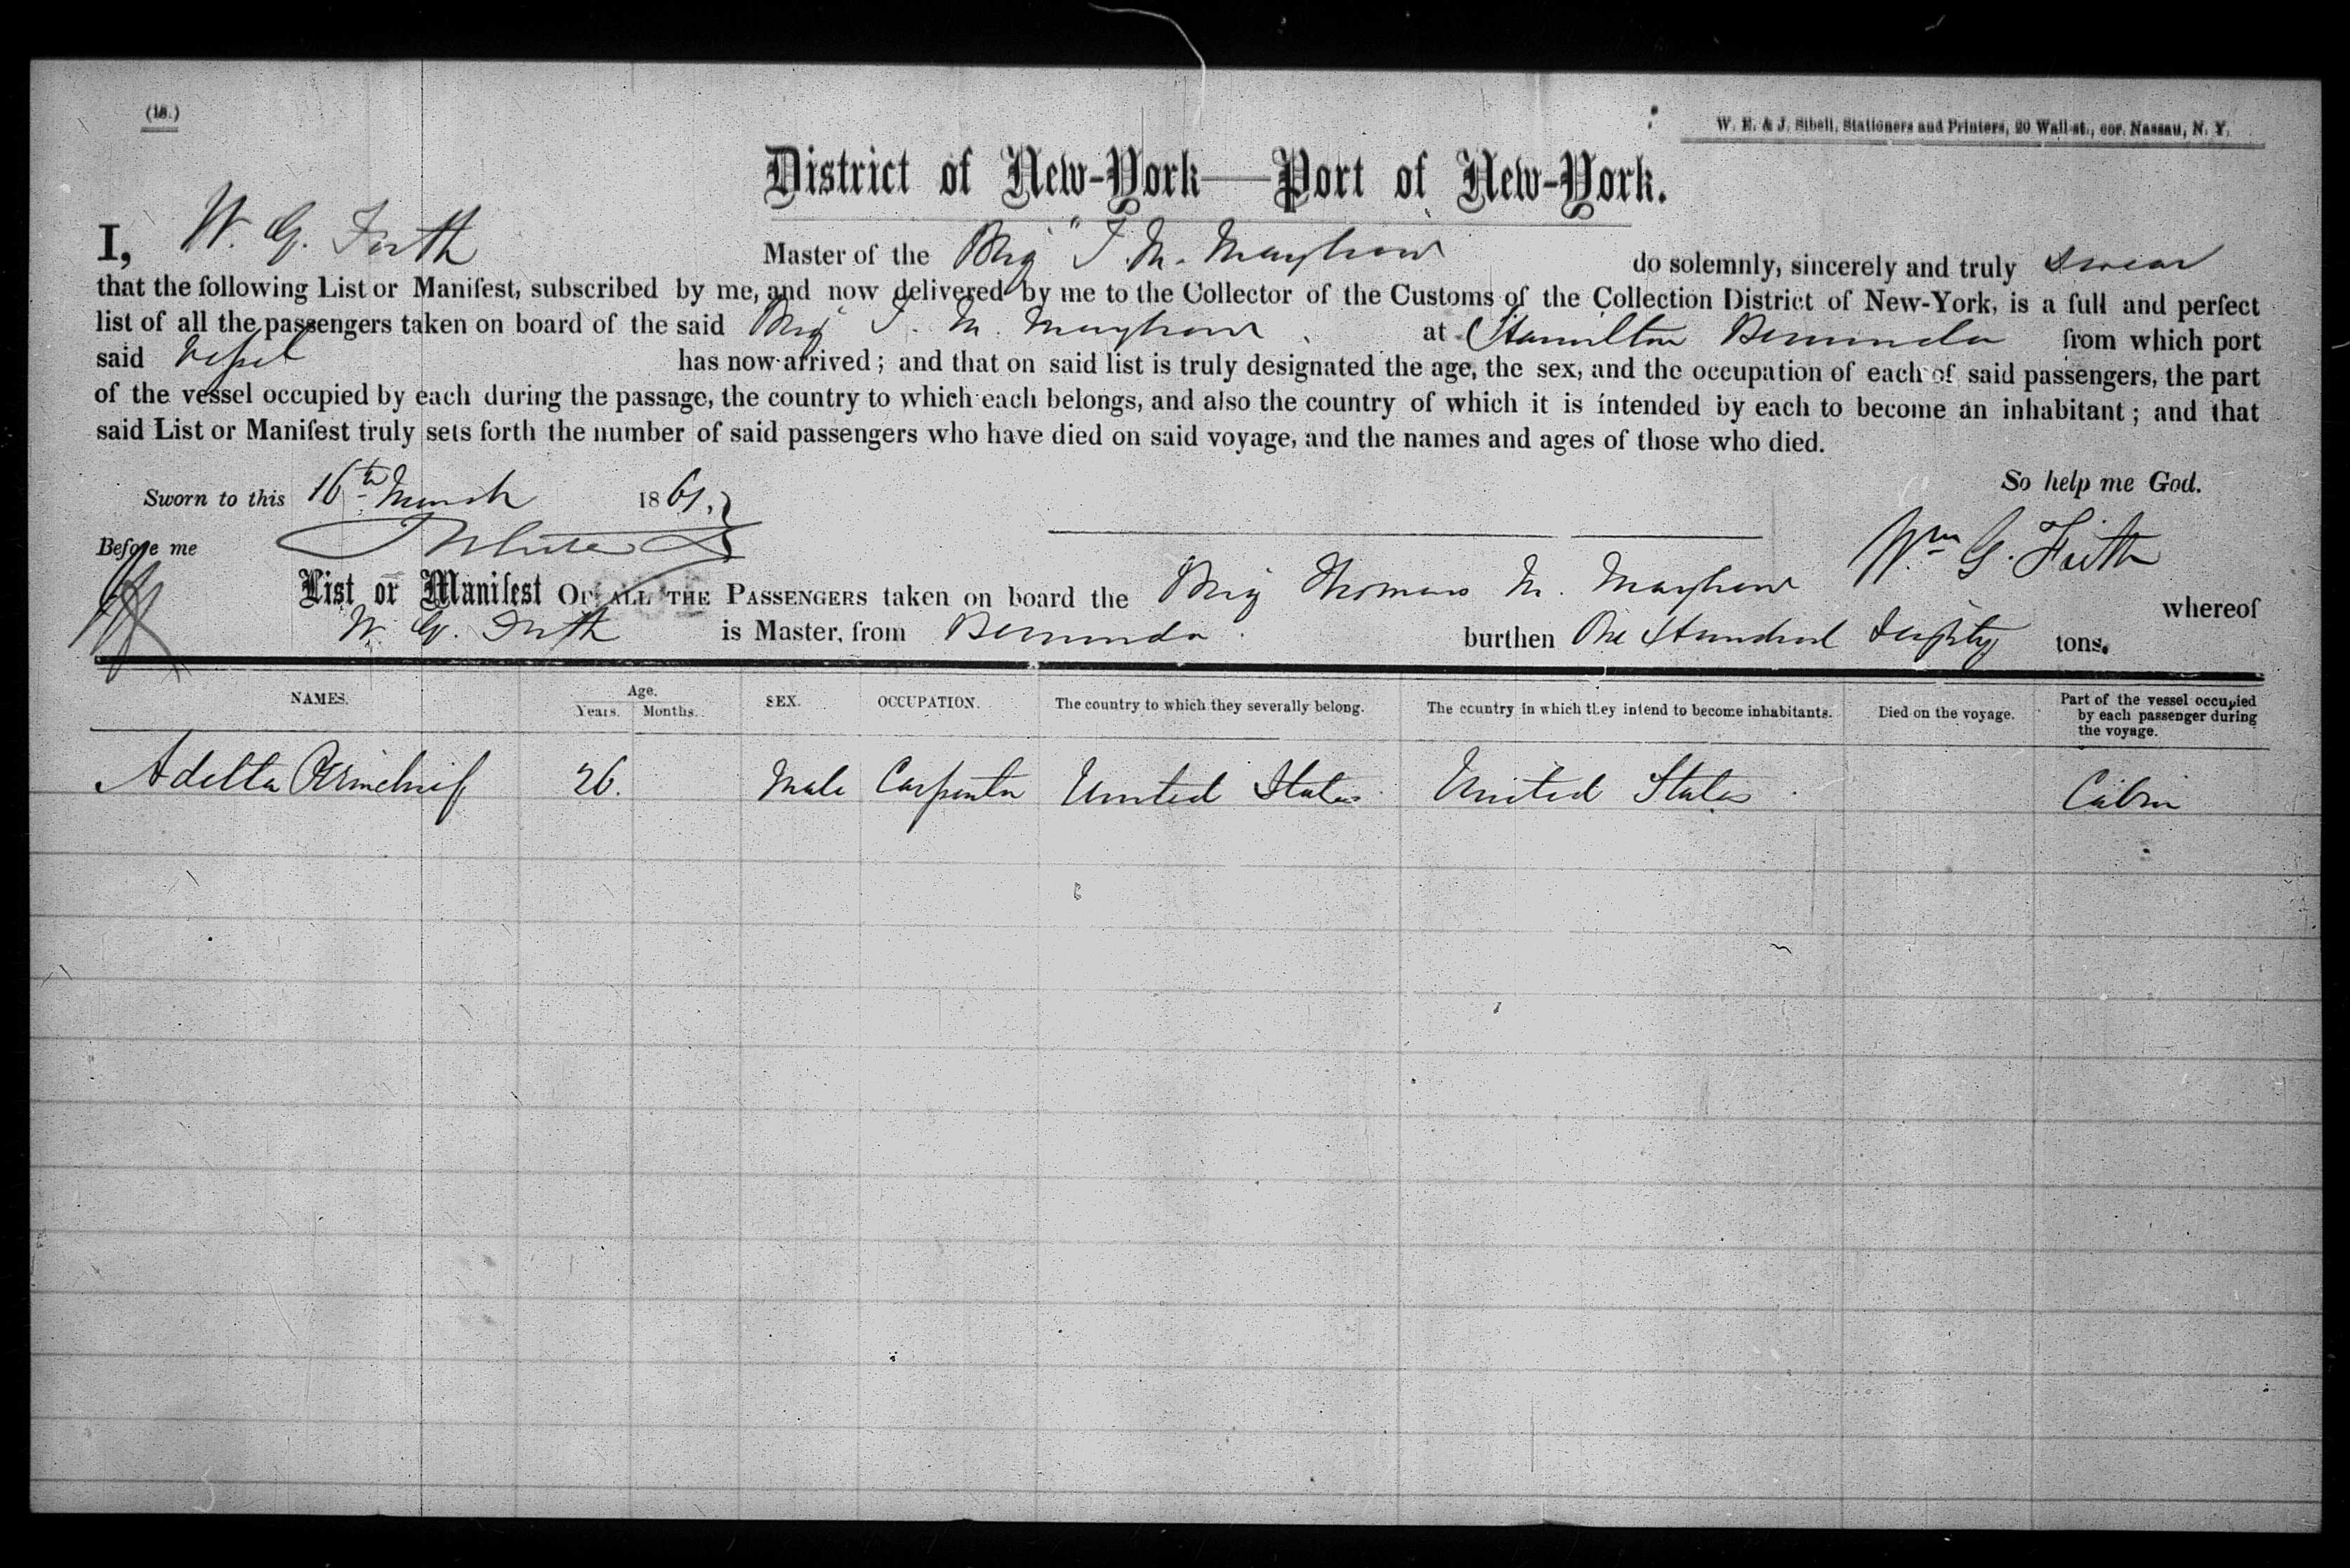 (18.)
W. E. & J. Sibell, Stationers and Printers, 20 Wall-st., cor. Nassau, N. Y.
District of New-York—Port of New-York.
I, W. G. Frith Master of the Brig "T. M. Mayhew do solemnly, sincerely and truly swear
that the following List or Manifest, subscribed by me, and now delivered by me to the Collector of the Customs of the Collection District of New-York, is a full and perfect
list of all the passengers taken on board of the said Brig T. M. Mayhew at Hamilton Bermuda from which port
said Vessel has now arrived; and that on said list is truly designated the age, the sex, and the occupation of each of said passengers, the part
of the vessel occupied by each during the passage, the country to which each belongs, and also the country of which it is intended by each to become an inhabitant; and that
said List or Manifest truly sets forth the number of said passengers who have died on said voyage, and the names and ages of those who died.
So help me God.
Sworn to this 16th March 1861.
Wm G. Frith
Before me
List or Manifest OF ALL THE PASSENGERS taken on board the Brig Thomas M. Mayhew whereof
W. G. Frith is Master, from Bermuda. burthen One Hundred Eighty tons.
NAMES. Age. Years. Months. SEX. OCCUPATION. The country to which they severally belong. The country in which they intend to become inhabitants. Died on the voyage. Part of the vessel occupied by each passenger during the voyage.
Adelta 26. Male Carpenter United States United States Cabin